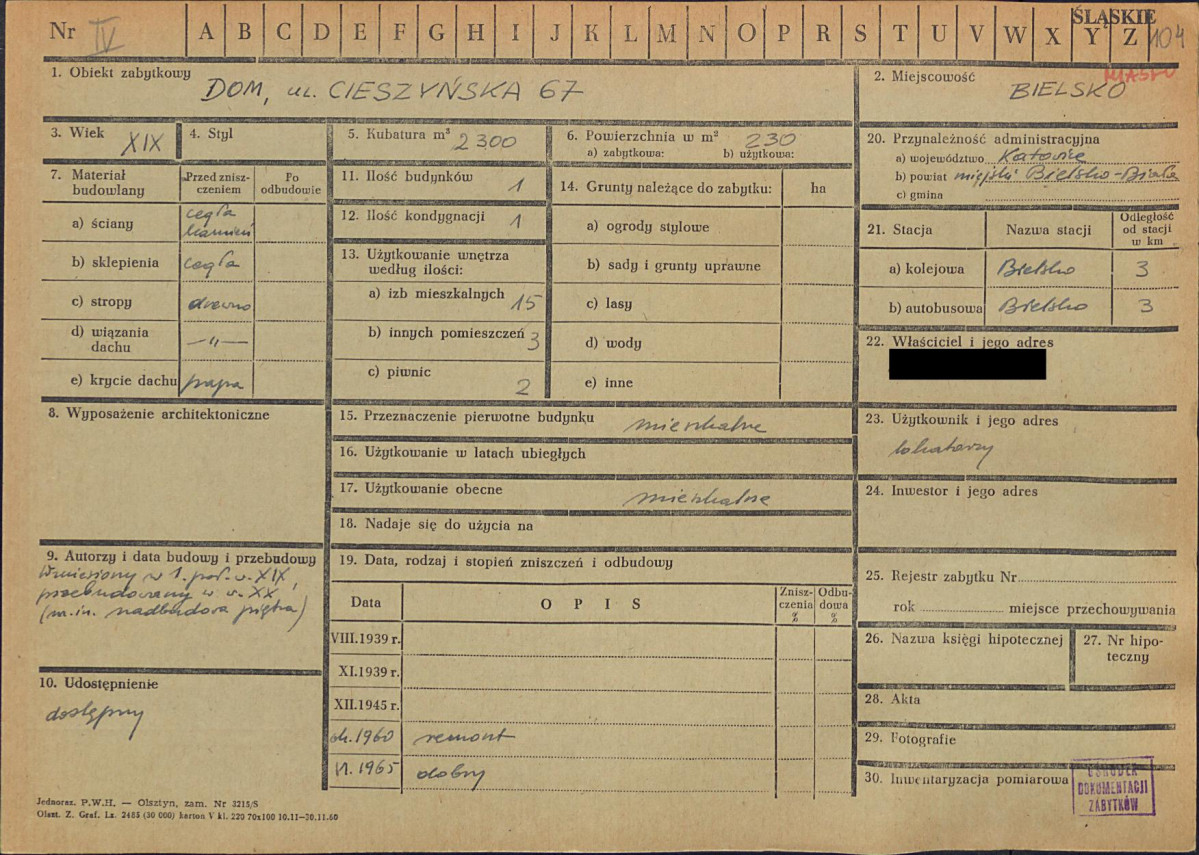 Nr IV A B C D E F G H I J K L M N O P R S T U V W X Y Z ŚLĄSKIE 104
1. Obiekt zabytkowy
DOM, ul. CIESZYŃSKA 67
2. Miejscowość
MIASTO
BIELSKO
3. Wiek XIX
4. Styl
5. Kubatura m³ 2300
6. Powierzchnia w m² 230
a) zabytkowa: b) użytkowa:
7. Materiał budowlany
Przed znisz-
czeniem
Po
odbudowie
a) ściany cegła
kamień
b) sklepienia cegła
c) stropy drewno
d) wiązania
dachu —„—
e) krycie dachu papa
8. Wyposażenie architektoniczne
9. Autorzy i data budowy i przebudowy
Wzniesiony w 1. poł. w. XIX,
przebudowany w w. XX
(m.in. nadbudowa piętra)
10. Udostępnienie
dostępny
11. Ilość budynków 1
12. Ilość kondygnacji 1
13. Użytkowanie wnętrza
według ilości:
a) izb mieszkalnych 15
b) innych pomieszczeń 3
c) piwnic 2
14. Grunty należące do zabytku: ha
a) ogrody stylowe
b) sady i grunty uprawne
c) lasy
d) wody
e) inne
15. Przeznaczenie pierwotne budynku mieszkalne
16. Użytkowanie w latach ubiegłych
17. Użytkowanie obecne mieszkalne
18. Nadaje się do użycia na
19. Data, rodzaj i stopień zniszczeń i odbudowy
Data OPIS Znisz-
czenia
%
Odbu-
dowa
%
VIII.1939 r.
XI.1939 r.
XII.1945 r.
ok. 1960 remont
VI. 1965 dobry
20. Przynależność administracyjna
a) województwo Katowice
b) powiat miejski Bielsko-Biała
c) gmina
21. Stacja Nazwa stacji Odległość
od stacji
w km
a) kolejowa Bielsko 3
b) autobusowa Bielsko 3
22. Właściciel i jego adres
23. Użytkownik i jego adres
lokatorzy
24. Inwestor i jego adres
25. Rejestr zabytku Nr
rok miejsce przechowywania
26. Nazwa księgi hipotecznej
27. Nr hipo-
teczny
28. Akta
29. Fotografie
30. Inwentaryzacja pomiarowa
OŚRODEK
DOKUMENTACJI
ZABYTKÓW
Jednoraz. P.W.H. — Olsztyn, zam. Nr 3215/S
Olszt. Z. Graf. Lz. 2485 (30 000) karton V kl. 220 70x100 10.11—30.11.60